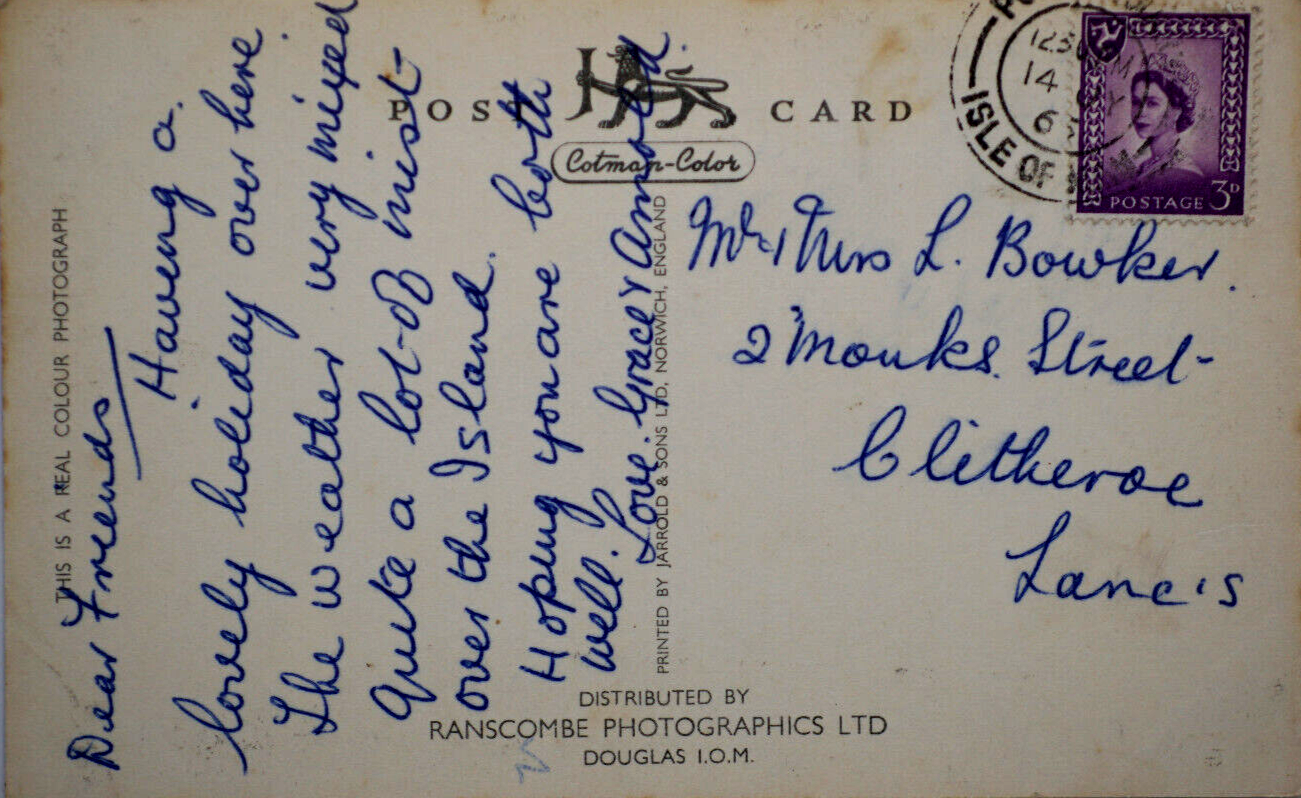 POST CARD
Cotman-Color
THIS IS A REAL COLOUR PHOTOGRAPH
Dear Friends
Having a
lovely holiday over here
The weather very mixed
Quite a lot of mist
over the Island.
Hoping you are both
well. Love. Grace & Arnold.
PRINTED BY JARROLD & SONS LTD, NORWICH, ENGLAND
DISTRIBUTED BY
RANSCOMBE PHOTOGRAPHICS LTD
DOUGLAS I.O.M.
ISLE OF
14
POSTAGE 3D
Mr & Mrs L. Bowker.
2 Monks. Street
Clitheroe
Lanc's